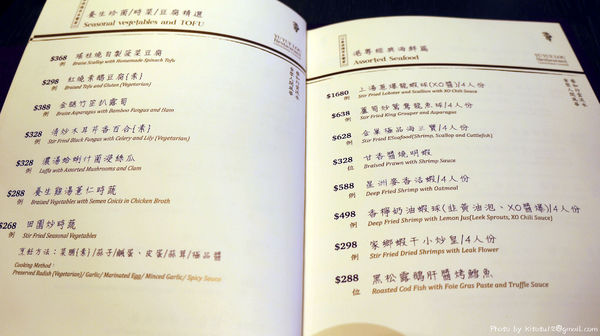 養生珍菌/時菜/豆腐精選
Seasonal vegetables and TOFU
$368 例 瑤柱燒自製菠菜豆腐
Braise Scallop with Homemade Spinach Tofu
$298 例 紅燒素腊豆腐{素}
Braised Tofu and Gluten (Vegetarian)
$388 例 金腿竹笙扒露筍
Braise Asparagus with Bamboo Fungus and Ham
$328 例 清炒木耳芹香百合{素}
Stir Fried Black Fungus with Celery and Lily (Vegetarian)
$328 例 濃湯蛤蜊什菌浸絲瓜
Luffa with Assorted Mushrooms and Clam
$288 例 養生雞湯薏仁時蔬
Braised Vegetables with Semen Coicis in Chicken Broth
$268 例 田園炒時蔬
Stir Fried Seasonal Vegetables
烹飪方法：菜脯{素}/蒜子/鹹蛋、皮蛋/蒜茸/極品醬
Cooking Method :
Preserved Radish (Vegetarian)/ Garlic/ Marinated Egg/ Minced Garlic/ Spicy Sauce
港粵經典海鮮篇
Assorted Seafood
$1680 例 上湯蔥爆龍蝦球(XO醬)/4人份
Stir Fried Lobster and Scallion with XO Chili Sauce
$638 例 蘆筍炒鴛鴦龍魚球/4人份
Stir Fried King Grouper and Asparagus
$628 例 金巢極品海三寶/4人份
Stir Fried ESeafood(Shrimp, Scallop and Cuttlefish)
$328 位 甘香醬燒明蝦
Braised Prawn with Shrimp Sauce
$588 例 星洲麥香活蝦/4人份
Deep Fried Shrimp with Oatmeal
$498 例 香檸奶油蝦球(韭黃油泡、XO醬爆)/4人份
Deep Fried Shrimp with Lemon Jus(Leek Sprouts, XO Chili Sauce)
$298 例 家鄉蝦干小炒皇/4人份
Stir Fried Dried Shrimps with Leak Flower
$288 位 黑松露鵝肝醬烤鱈魚
Roasted Cod Fish with Foie Gras Paste and Truffle Sauce